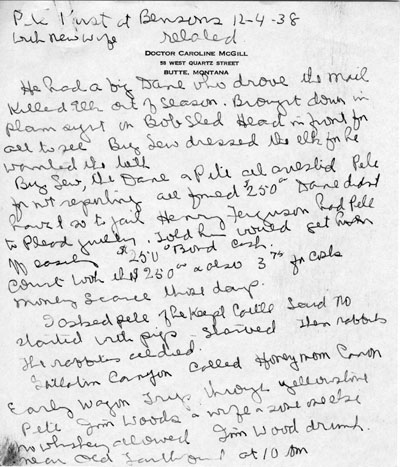 Pete Kust at Bensons 12-4-38
with new wife related
DOCTOR CAROLINE McGILL
58 WEST QUARTZ STREET
BUTTE, MONTANA
He had a big Dane who drove the mail
Killed Elk out of season. Brought down in
plain sight on Bob Sled Head in front for
all to see Buy Sew dressed the elk for he
wanted the teeth
Buy Sew, the Dane & Pete all arrested Pete
for not reporting all fined $250 00 Dane didnt
have & so to jail Henry Ferguson had Pete
to Plead guilty. Told him would get him
off easily $250 00 Bond cash.
Court took the $250 00 & also 3 75 for costs
money scarce those days.
I asked pete if he kept Cattle Said no
started with pigs - starved then rabbits
The rabbits all died.
Gallatin Canyon called Honeymoon Canon
Early Wagon Trip through yellowstone
Pete Jim Woods & wife & some one else
no whiskey allowed Jim Wood drunk.
near Old Faithful at 10 am